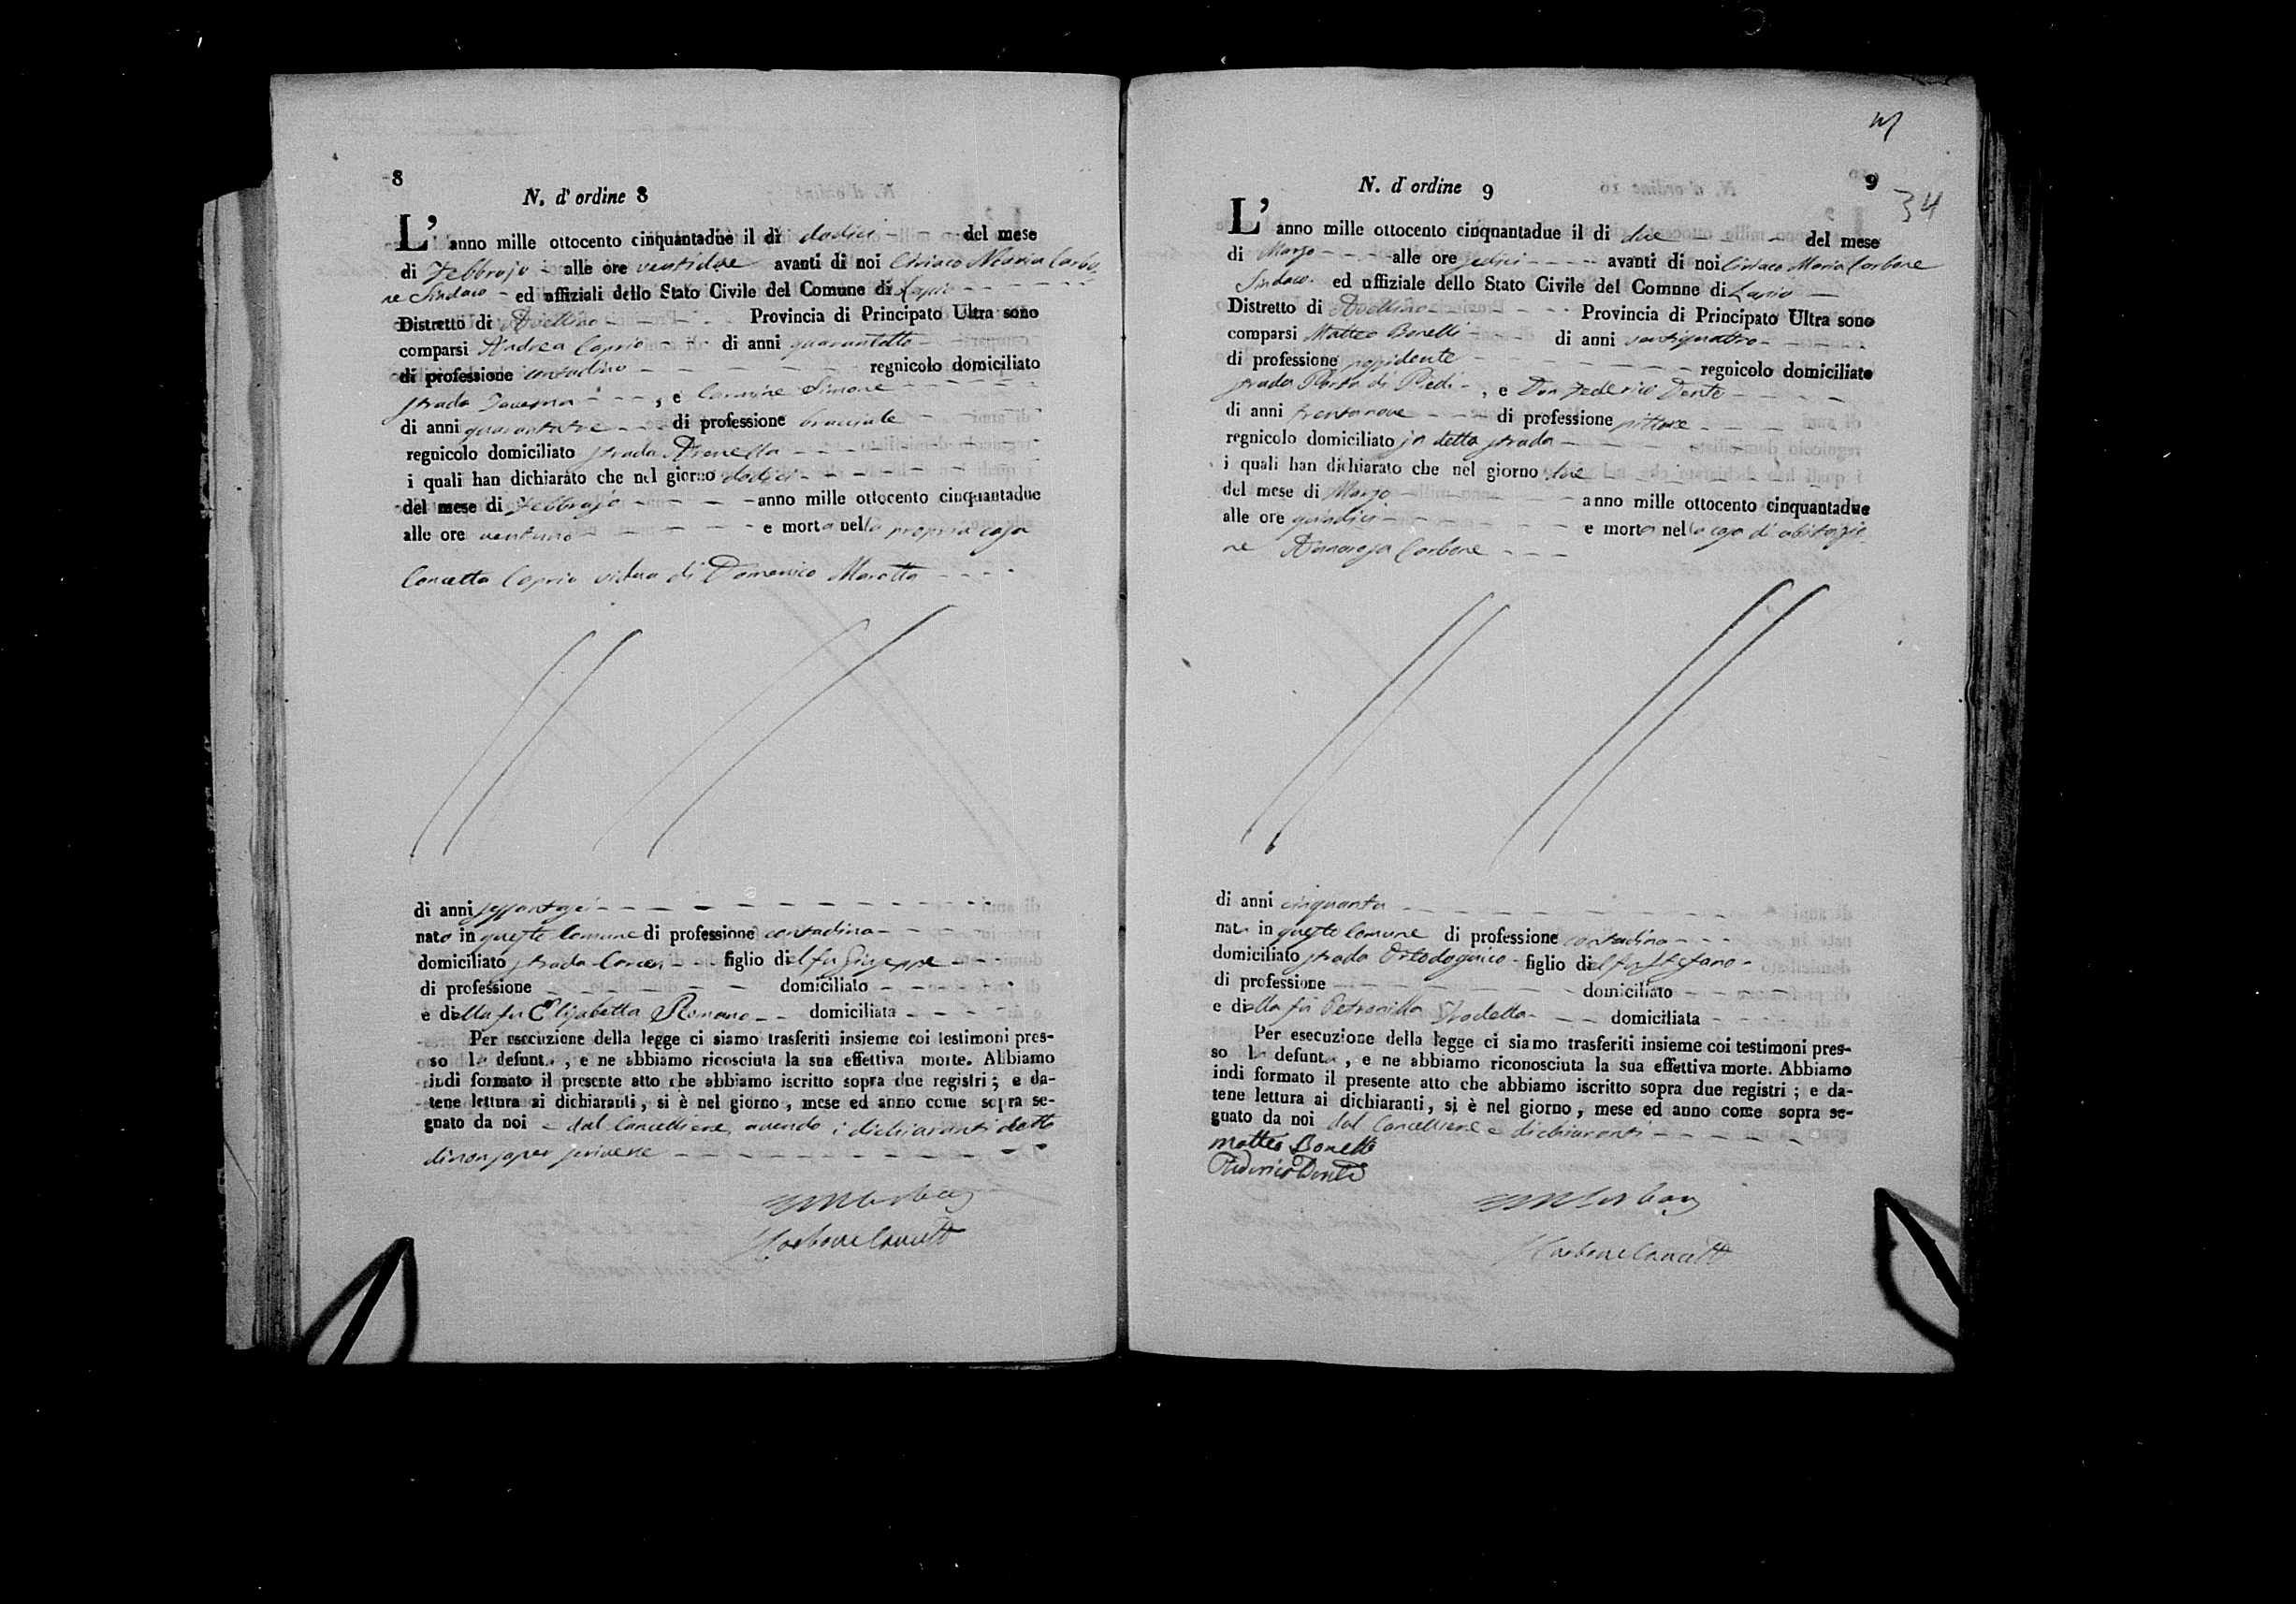 8
N. d' ordine 8
L' anno mille ottocento cinquantadue il di dodici del mese
di Febbrajo alle ore ventidue avanti di noi Ciriaco Maria Carbo-
ne Sindaco ed uffiziali dello Stato Civile del Comune di Lapio
Distretto di Avellino Provincia di Principato Ultra sono
comparsi Andrea Caprio di anni quarantotto
di professione contadino regnicolo domiciliato
strada Taverna , e Carmine Simone
di anni quarantatre di professione bracciale
regnicolo domiciliato strada Arenella
i quali han dichiarato che nel giorno dodici
del mese di Febbrajo anno mille ottocento cinquantadue
alle ore ventuno e morta nella propria casa
Concetta Caprio vidua di Domenico Marotta
di anni sessantasei
nato in questo Comune di professione contadina
domiciliato strada figlio del fu Giuseppe
di professione domiciliato
e della fu Elisabetta Romano domiciliata
Per esecuzione della legge ci siamo trasferiti insieme coi testimoni pres-
so la defunta , e ne abbiamo ricosciuta la sua effettiva morte. Abbiamo
indi formato il presente atto che abbiamo iscritto sopra due registri ; e da-
tene lettura ai dichiaranti , si è nel giorno , mese ed anno come sopra se-
gnato da noi e dal Cancelliere, avendo i dichiaranti detto
di non saper scrivere
Carbone Cancell
9
34
N. d' ordine 9
L' anno mille ottocento cinqnantadue il di due del mese
di Marzo alle ore sedici avanti di noi Ciriaco Maria Carbone
Sindaco ed uffiziale dello Stato Civile del Comnne di Lapio
Distretto di Avellino Provincia di Principato Ultra sono
comparsi Matteo Bonelli di anni ventiquattro
di professione possidente regnicolo domiciliato
strada Porta di Piedi , e Don Federico Dente
di anni trentanove di professione pittore
regnicolo domiciliato in detta strada
i quali han dichiarato che nel giorno due
del mese di Marzo anno mille ottocento cinquantadue
alle ore quindici e morta nella casa di abitazio-
ne Annarosa Carbone
di anni cinquanta
nata in questo Comune di professione contadina
domiciliato strada figlio del fu Stefano
di professione domiciliato
e della fu Petronilla domiciliata
Per esecuzione della legge ci siamo trasferiti insieme coi testimoni pres-
so la defunta , e ne abbiamo riconosciuta la sua effettiva morte. Abbiamo
indi formato il presente atto che abbiamo iscritto sopra due registri ; e da-
tene lettura ai dichiaranti, si è nel giorno , mese ed anno come sopra se-
gnato da noi dal Cancelliere e dichiaranti
Matteo Bonelli
Federico Dente
Carbone Cancell